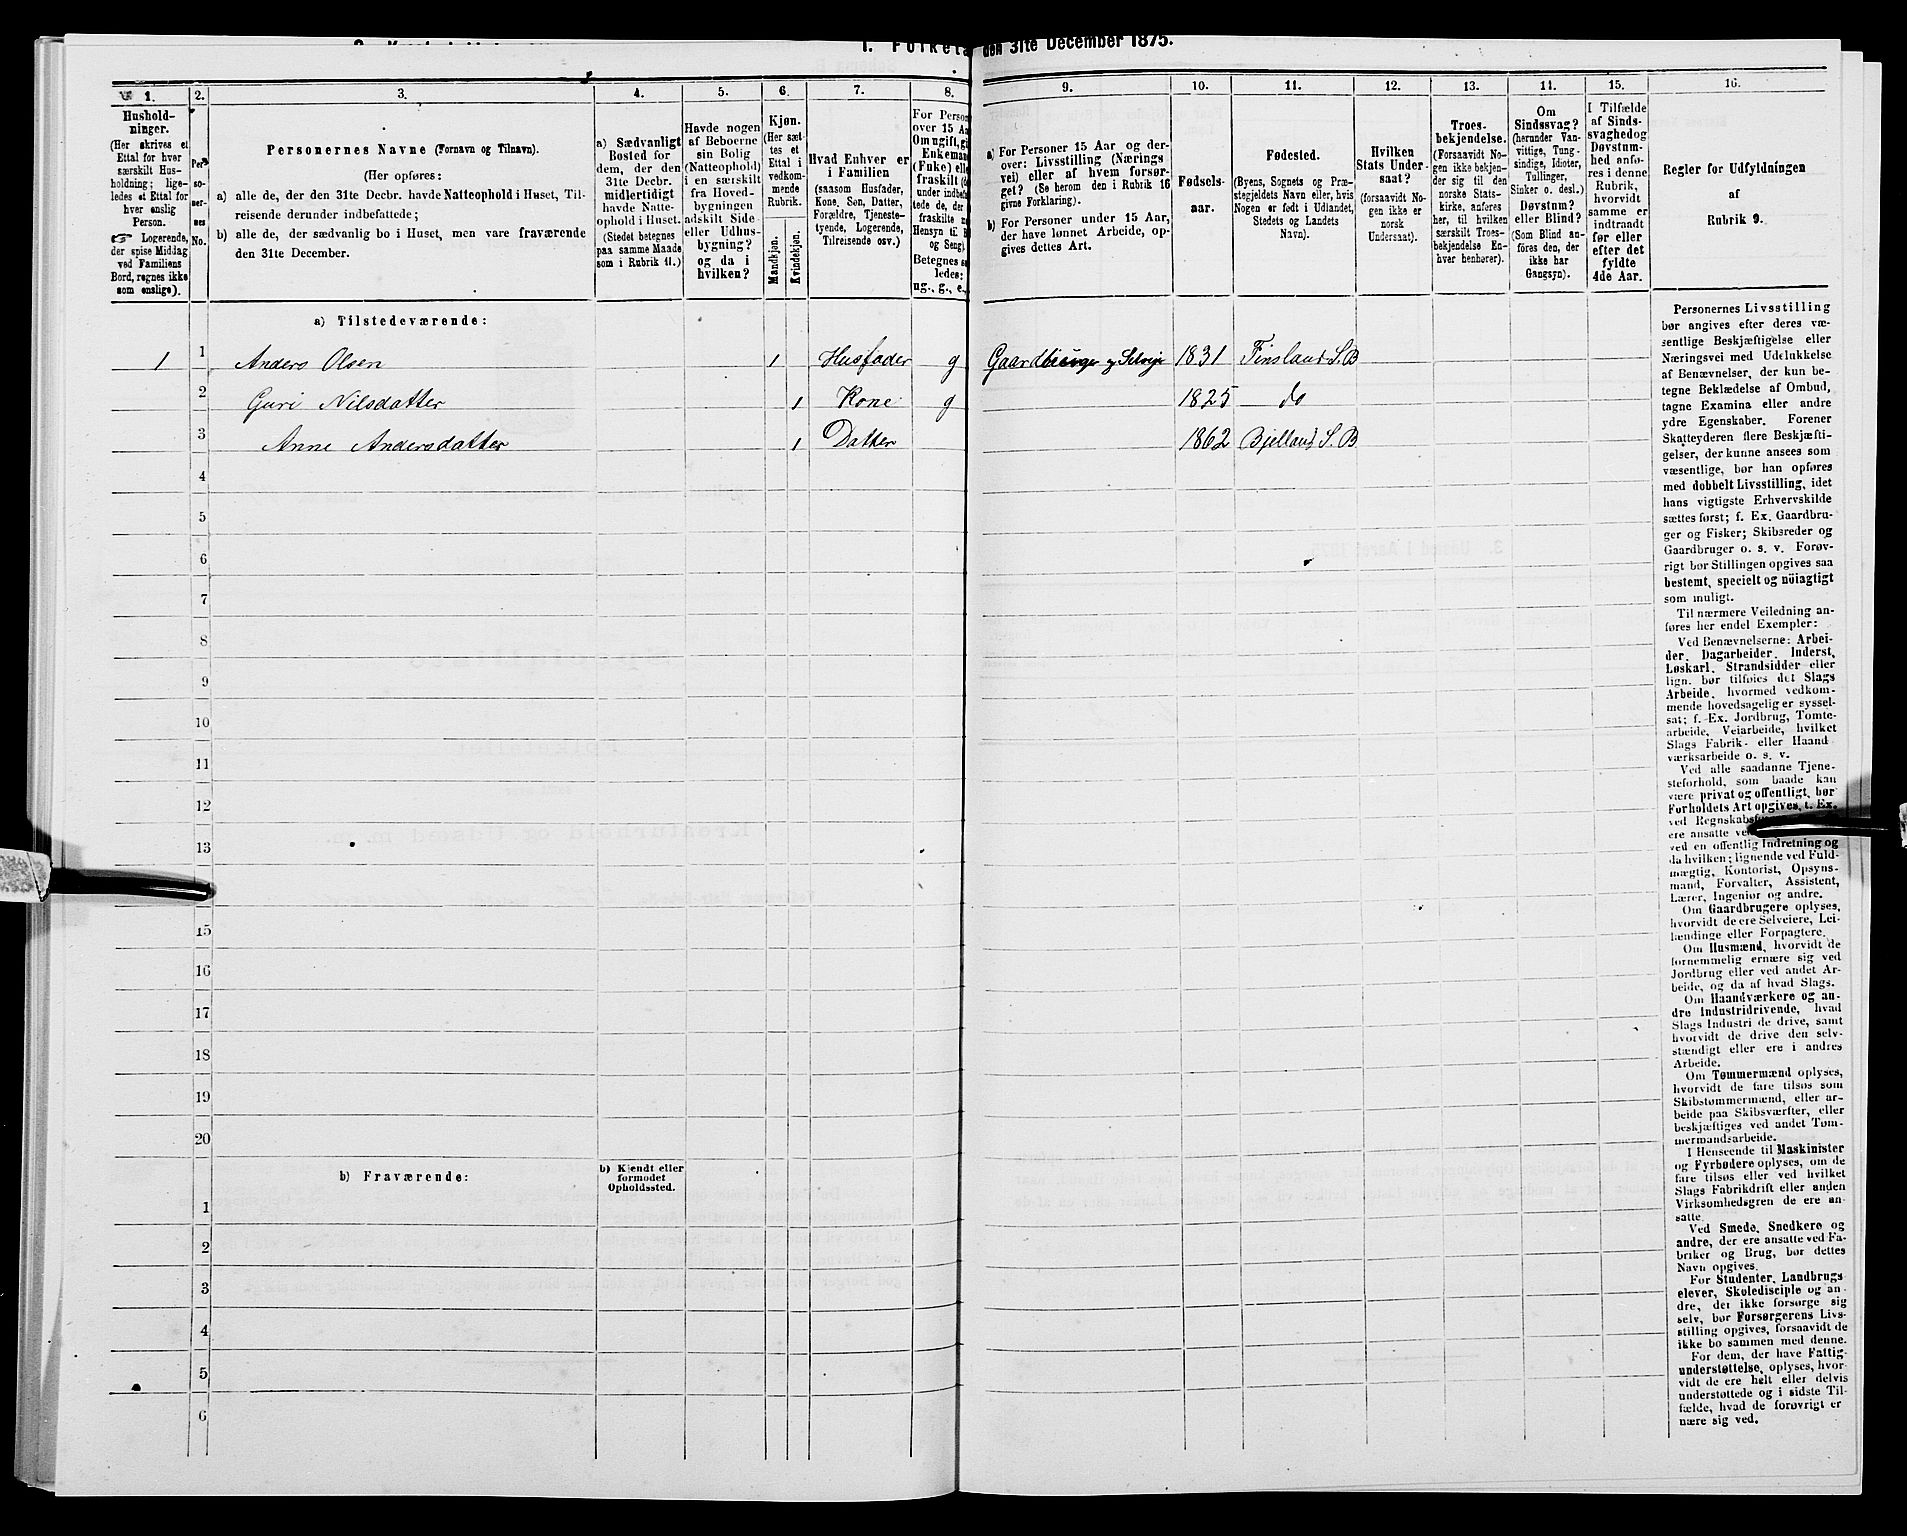 1. Folketæ den 31te December 1875.
1. 2. 3. 4. 5. 6. 7. 8. 9. 10. 11. 12. 13. 14. 15. 16.
Hushold-
ninger.
(Her skrives et
Ettal for hver
særskilt Hus-
holdning; lige-
ledes et Ettal for
hver enslig
Person.
☞ Logerende,
der spise Middag
ved Familiens
Bord, regnes ikke
som enslige).
Per-
so-
ner-
nes
No.
Personernes Navne (Fornavn og Tilnavn).
(Her opføres:
a) alle de, der den 31te Decbr. havde Natteophold i Huset, Til-
reisende derunder indbefattede;
b) alle de, der sædvanlig bo i Huset, men vare fraværende
den 31te December.
a) Sædvanligt
Bosted for
dem, der den
31te Decbr.
midlertidigt
havde Natte-
ophold i Huset.
(Stedet betegnes
paa samme Maade
som i Rubrik 11.)
Havde nogen
af Beboerne
sin Bolig
(Natteophold)
i en særskilt
fra Hoved-
bygningen
adskilt Side-
eller Udhus-
bygning?
og da i
hvilken?
Kjøn.
(Her sæt-
tes et
Ettal i
vedkom-
mende
Rubrik.
Mandkjøn.
Kvindekjøn.
Hvad Enhver er
i Familien
(saasom Husfader,
Kone, Søn, Datter,
Forældre, Tjeneste-
tyende, Logerende,
Tilreisende osv.)
For Person
over 15 Aa
Om ugift, gi
Enkemand
(Enke) elle
fraskilt (
under indbe
tede de, der
fraskilte n
Hensyn til B
og Seng).
Betegnes sa
ledes:
ug., g., e.,
a) For Personer 15 Aar og der-
over: Livsstilling (Nærings
vei) eller af hvem forsør-
get? (Se herom den i Rubrik 16
givne Forklaring).
b) For Personer under 15 Aar,
der have lønnet Arbeide, op-
gives dettes Art.
Fødsels-
aar.
Fødested.
(Byens, Sognets og Præ-
stegjeldets Navn eller, hvis
Nogen er født i Udlandet,
Stedets og Landets
Navn).
Hvilken
Stats Under-
saat?
(forsaavidt No-
gen ikke er
norsk
Undersaat).
Troes-
bekjendelse.
(Forsaavidt No-
gen ikke bekjen-
der sig til den
norske Stats-
kirke, anføres
her, til hvilken
særskilt Troes-
bekjendelse En-
hver henhører).
Om
Sindssvag?
(herunder Van-
vittige, Tung-
sindige, Idioter,
Tullinger,
Sinker o. desl.)
Døvstum?
eller Blind?
(Som Blind an-
føres den, der
ikke har
Gangsyn).
I Tilfælde
af Sinds-
svaghedog
Døvstum-
hed anfø-
res i denne
Rubrik,
hvorvidt
samme er
indtraadt
før eller
efter det
fyldte
4de Aar.
Regler for Udfyldningen
af
Rubrik 9.
a) Tilstedeværende:
1 1 Anders Olsen 1 Husfader g Gaardbruger og Selveje 1831 Finsland S. B
2 Guri Nilsdatter 1 Kone g 1825 do
3 Anne Andersdatter 1 Datter 1862 Bjelland S. B
4
5
6
7
8
9
10
11
12
13
15
16
17
18
19
20
b) Fraværende:
b) Kjendt eller
formodet
Opholdssted.
1
2
3
4
5
6
Personernes Livsstilling
bør angives efter deres væ-
sentlige Beskjæftigelse eller
Næringsvei med Udelukkelse
af Benævnelser, der kun be-
tegne Beklædelse af Ombud,
tagne Examina eller andre
ydre Egenskaber. Forener
Skatteyderen flere Beskjæfti-
gelser, der kunne ansees som
væsentlige, bør han opføres
med dobbelt Livsstilling, idet
hans vigtigste Erhvervskilde
sættes først; f. Ex. Gaardbru-
ger og Fisker; Skibsreder og
Gaardbruger o. s. v. Forøv-
rigt bør Stillingen opgives saa
bestemt, specielt og nöiagtigt
som muligt.
Til nærmere Veiledning an-
føres her endel Exempler:
Ved Benævnelserne: Arbei-
der, Dagarbeider, Inderst,
Løskarl, Strandsidder eller
lign. bør tilføies det Slags
Arbeide, hvormed vedkom-
mende hovedsagelig er syssel-
sat; f. Ex. Jordbrug, Tomte-
arbeide, Veiarbeide, hvilket
Slags Fabrik- eller Haand
værksarbeide o. s. v.
Ved alle saadanne Tjene-
steforhold, som baade kan
være privat og offentligt, bør
Forholdets Art opgives, t. Ex.
ved Regnskabsf
ere ansatte ve
ved en offentlig Indretning og
da hvilken; lignende ved Fuld-
mægtig, Kontorist, Opsyns-
mand, Forvalter, Assistent,
Lærer, Ingeniør og andre.
Om Gaardbrugere oplyses,
hvorvidt de ere Selveiere, Lei-
lændinge eller Forpagtere.
Om Husmænd, hvorvidt de
fornemmelig ernære sig ved
Jordbrug eller ved andet Ar-
beide, og da af hvad Slags.
Om Haandværkere og an-
dre Industridrivende, hvad
Slags Industri de drive, samt
hvorvidt de drive den selv-
stændigt eller ere i andres
Arbeide.
Om Tømmermænd oplyses,
hvorvidt de fare tilsøs som
Skibstømmermænd, eller ar-
beide paa Skibsværfter, eller
beskjæftiges ved andet Tøm-
mermandsarbeide.
I Henseende til Maskinister
og Fyrbødere oplyses, om de
fare tilsøs eller ved hvilket
Slags Fabrikdrift eller anden
Virksomhedsgren de ere an-
satte.
Ved Smede, Snedkere og
andre, der ere ansatte ved Fa-
briker og Brug, bør dettes
Navn opgives.
For Studenter, Landbrugs
elever, Skoledisciple og an-
dre, der ikke forsørge sig
selv, bør Forsørgerens Livs-
stilling opgives, forsaavidt de
ikke bo sammen med denne.
For dem, der have Fattig
understøttelse, oplyses, hvor-
vidt de ere helt eller delvis
understøttede og i sidste Til-
fælde, hvad de forøvrigt er
nære sig ved.